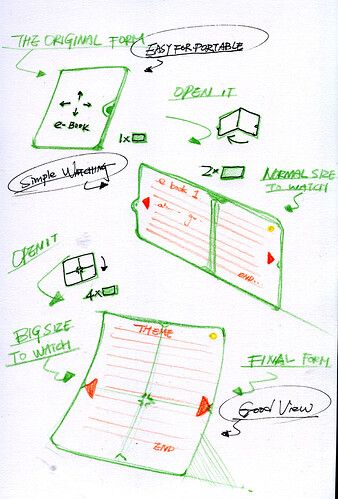 THE ORIGINAL FORM
EASY FOR PORTABLE
e-BOOK
1×
OPEN IT
Simple WATCHING
2×
NORMAL SIZE
TO WATCH
e book 1
END...
OPEN IT
4×
BIG SIZE
TO WATCH
THEME
FINAL FORM
Good View
END